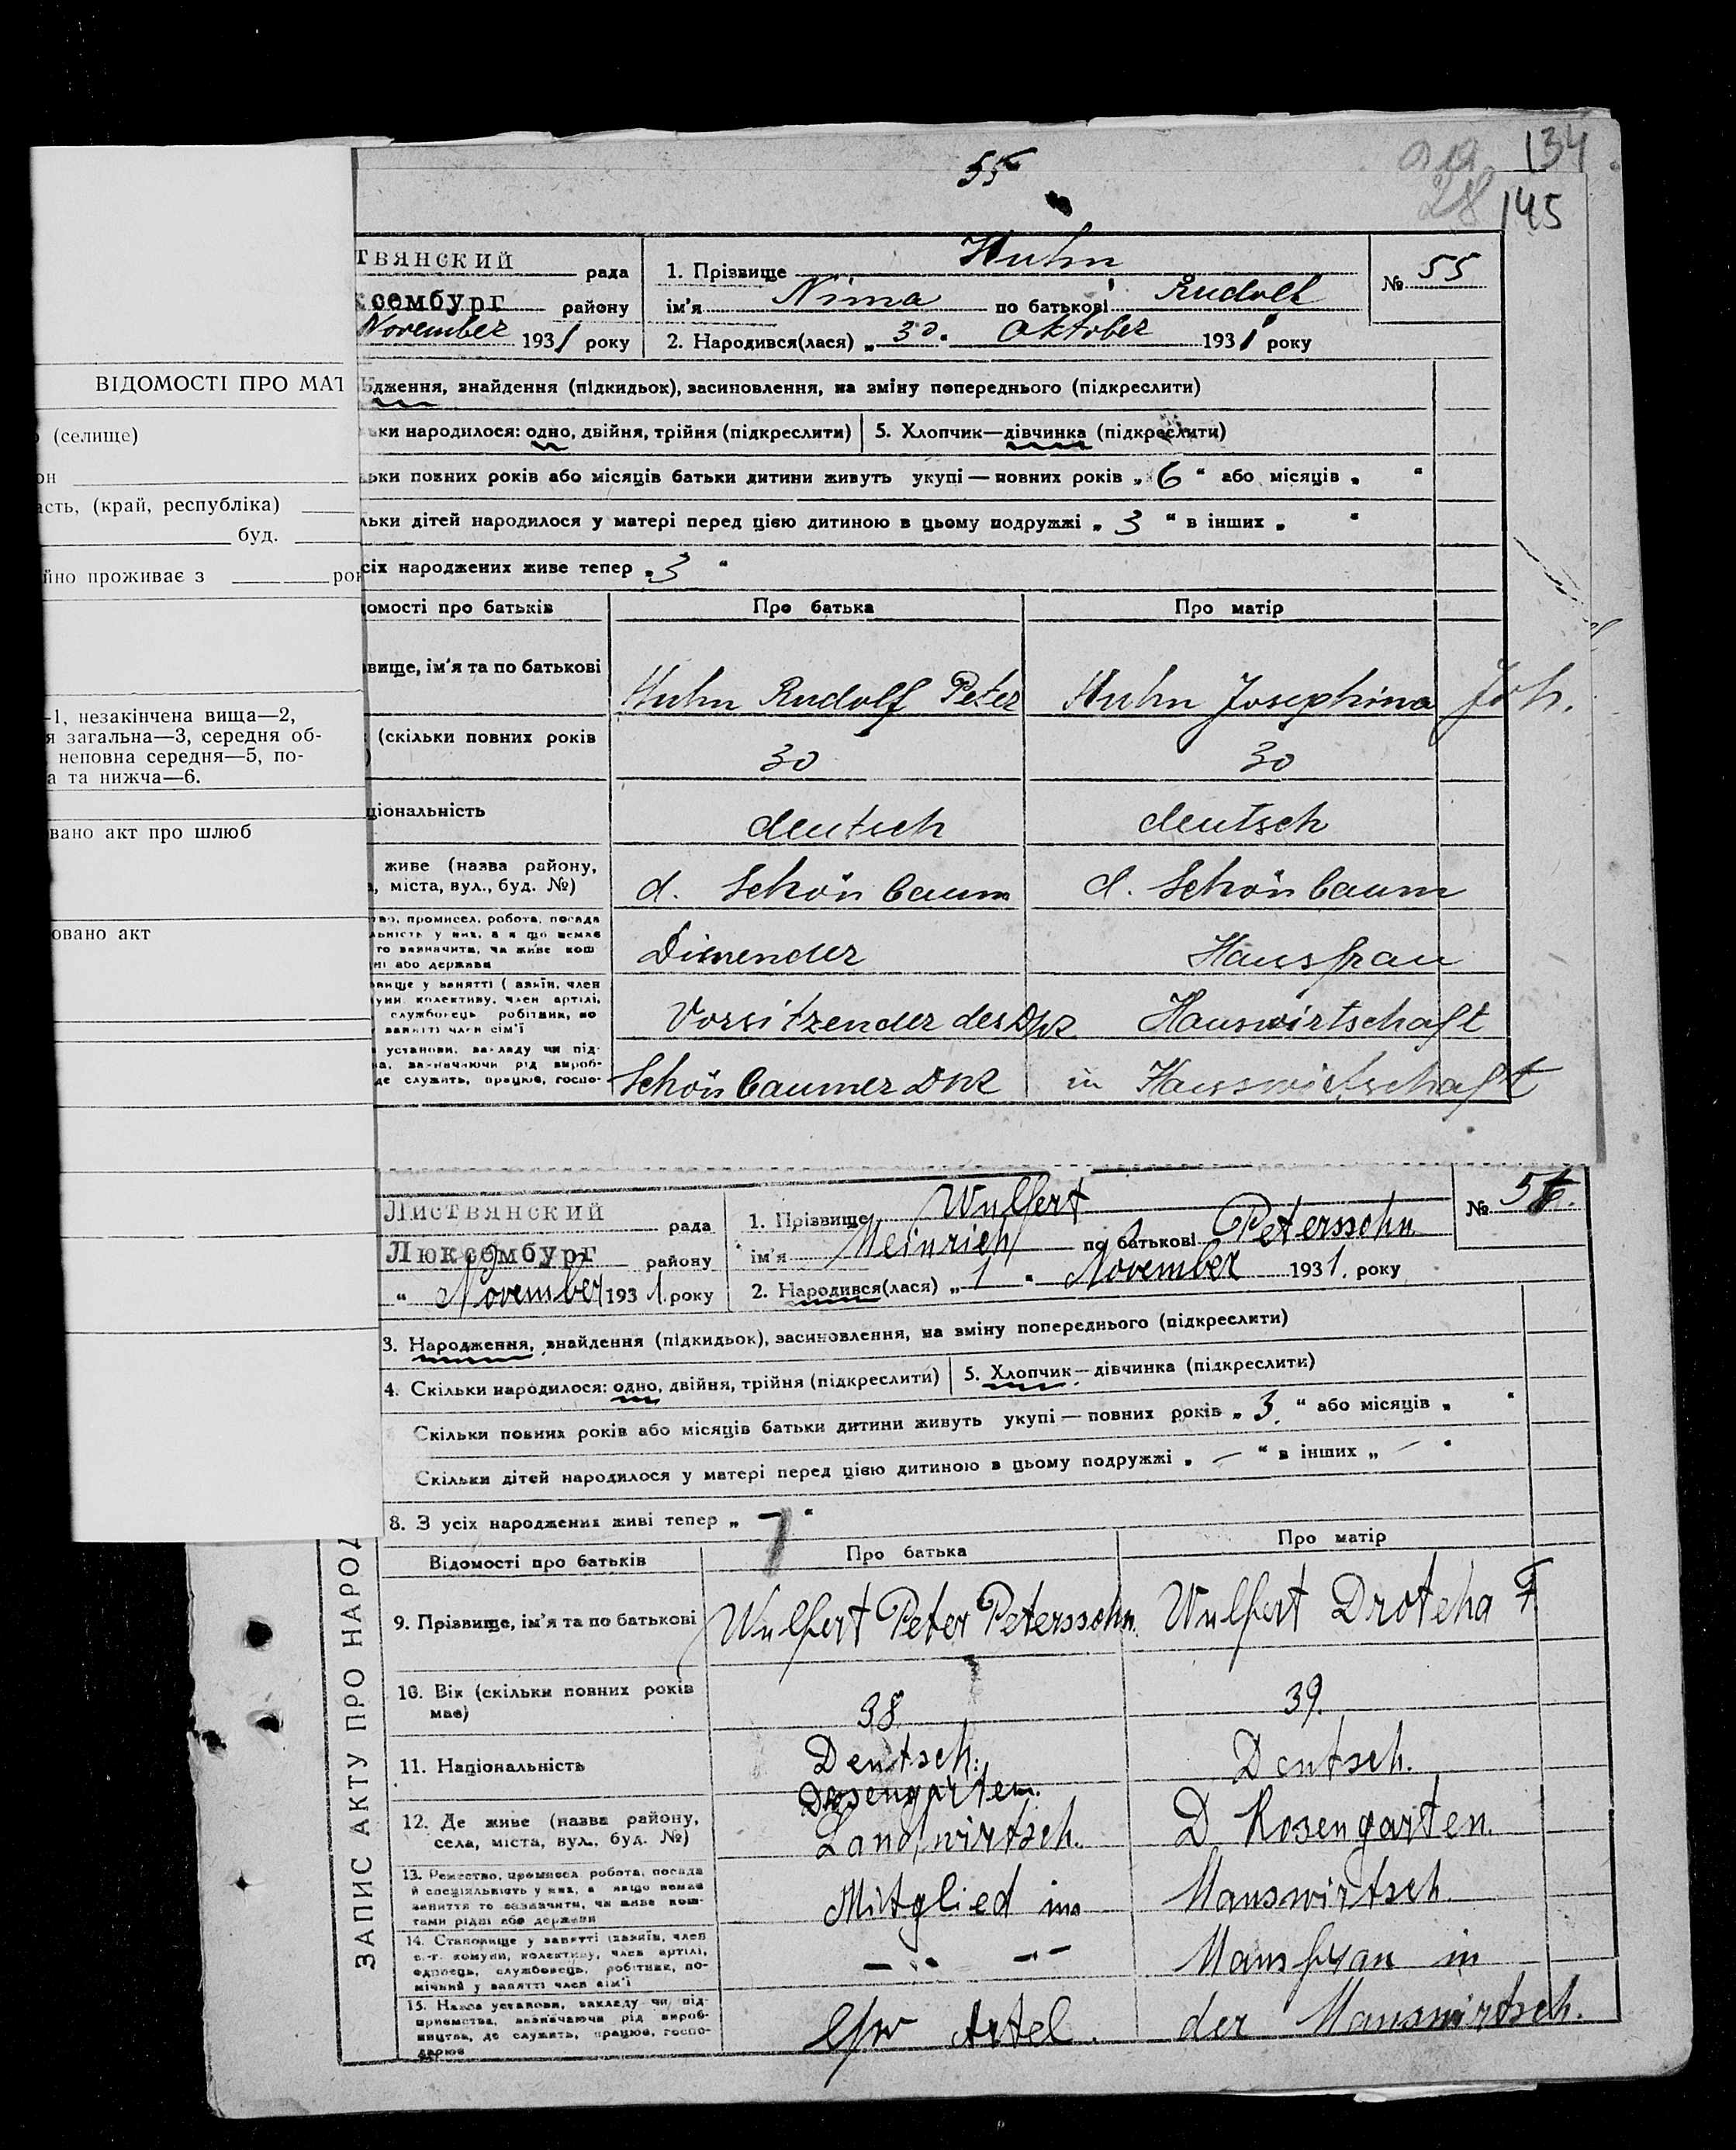 55
134
28
145
твянский рада
ксембург району
November 1931 року
1. Прізвище Huhn
ім'я Nina по батькові Rudolf
2. Народився(лася) „ 30. Oktober 1931 року
№ 55
дження, знайдення (підкидьок), засиновлення, на зміну попереднього (підкреслити)
ьки народилося: одно, двійня, трійня (підкреслити)
5. Хлопчик—дівчинка (підкреслити)
льки повних років або місяців батьки дитини живуть укупі — повних років „ 6 “ або місяців „ “
льки дітей народилося у матері перед цією дитиною в цьому подружжі „ 3 “ в інших „ “
сіх народжених живе тепер „ 3 “
омості про батьків Про батька Про матір
вище, ім'я та по батькові Huhn Rudolf Peter Huhn Josephina Joh.
(скільки повних років 30 30
ціональність deutsch deutsch
живе (назва району, міста, вул., буд. №) d. Schönbaum d. Schönbaum
во, промисел, робота, посада
льність у них, а якщо немає
то зазначити, чи живе кош
ні або держави
Dienender Hausfrau
вище у занятті ( хазяїн, член
уни, колективу, член артілі,
службовець робітник, по
занятті член сім'ї
Vorsitzender des DWR Hauswirtschaft
установи, закладу чи під-
а, зазначаючи рід вироб-
де служить, працює, госпо-
Schönbaumer DWR in Hauswirtschaft
ВІДОМОСТІ ПРО МАТ
(селище)
он
асть, (край, республіка)
буд.
йно проживає з рок
-1, незакінчена вища—2,
я загальна—3, середня об-
неповна середня—5, по-
а та нижча—6.
вано акт про шлюб
овано акт
Листвянский рада
Люксембург району
“ November 1931. року
1. Прізвище Wulfert
ім'я Heinrich по батькові Peterssohn
2. Народився(лася) „ 1 “ November 1931. року
№ 56.
3. Народження, знайдення (підкидьок), засиновлення, на зміну попереднього (підкреслити)
4. Скільки народилося: одно, двійня, трійня (підкреслити)
5. Хлопчик — дівчинка (підкреслити)
Скільки повних років або місяців батьки дитини живуть укупі — повних років „ 3. “ або місяців „ “
Скільки дітей народилося у матері перед цією дитиною в цьому подружжі „ — “ в інших „ — “
8. З усіх народжених живі тепер „ “
Відомості про батьків Про батька Про матір
9. Прізвище, ім'я та по батькові Wulfert Peter Peterssohn. Wulfert Droteha F.
10. Вік (скільки повних років має) 38. 39.
11. Національність Deutsch. Deutsch.
12. Де живе (назва району, села, міста, вул., буд. №) D Rosengarten. D Rosengarten.
13. Ремество, промисел робота, посада
й спеціяльність у них, а якщо немає
заняття то зазначити, чи живе кош-
тами рідні або держави
Landwirtsch. Hauswirtsch
14. Становище у занятті (хазяїн, член
с.-г. комуни, колективу, член артілі,
одноєць, службовець, робітник, по-
мічний у занятті член сім'ї
Mitglied im Hausfrau in
15. Назва установи, закладу чи під-
приємства, зазначаючи рід вироб-
ництва, де служить, працює, госпо-
дарює
Artel. der Hauswirtsch.
ЗАПИС АКТУ ПРО НАРОД